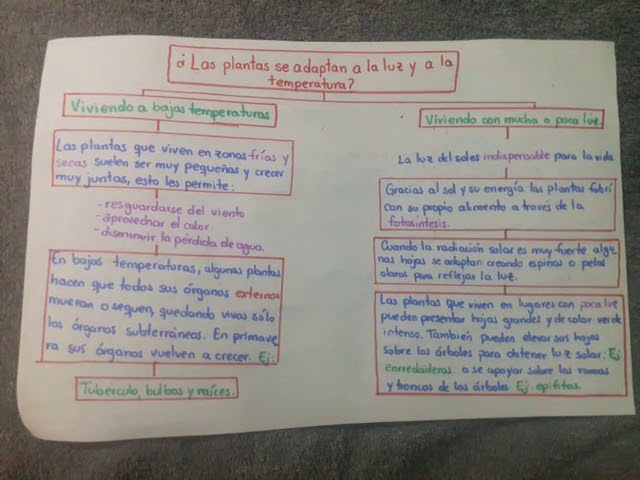 ¿Las plantas se adaptan a la luz y a la
temperatura?
Viviendo a bajas temperaturas
Las plantas que viven en zonas frías y
secas suelen ser muy pequeñas y crecer
muy juntas, esto les permite:
- resguardarse del viento
- aprovechar el calor
- disminuir la pérdida de agua.
En bajas temperaturas, algunas plantas
hacen que todos sus órganos externos
mueran o sequen, quedando vivos sólo
los órganos subterráneos. En primave
ra sus órganos vuelven a crecer. Ej:
Tubérculo, bulbos y raíces.
Viviendo con mucha o poca luz
La luz del sol es indispensable para la vida
Gracias al sol y su energía las plantas fabri
can su propio alimento a través de la
fotosíntesis.
Cuando la radiación solar es muy fuerte algu
nas hojas se adaptan creando espinas o pelos
claros para reflejar la luz.
Las plantas que viven en lugares con poca luz
pueden presentar hojas grandes y de color verde
intenso. También pueden elevar sus hojas
sobre los árboles para obtener luz solar: Ej
enrredaderas o se apoyar sobre las ramas
y troncos de los árboles Ej. epífitas